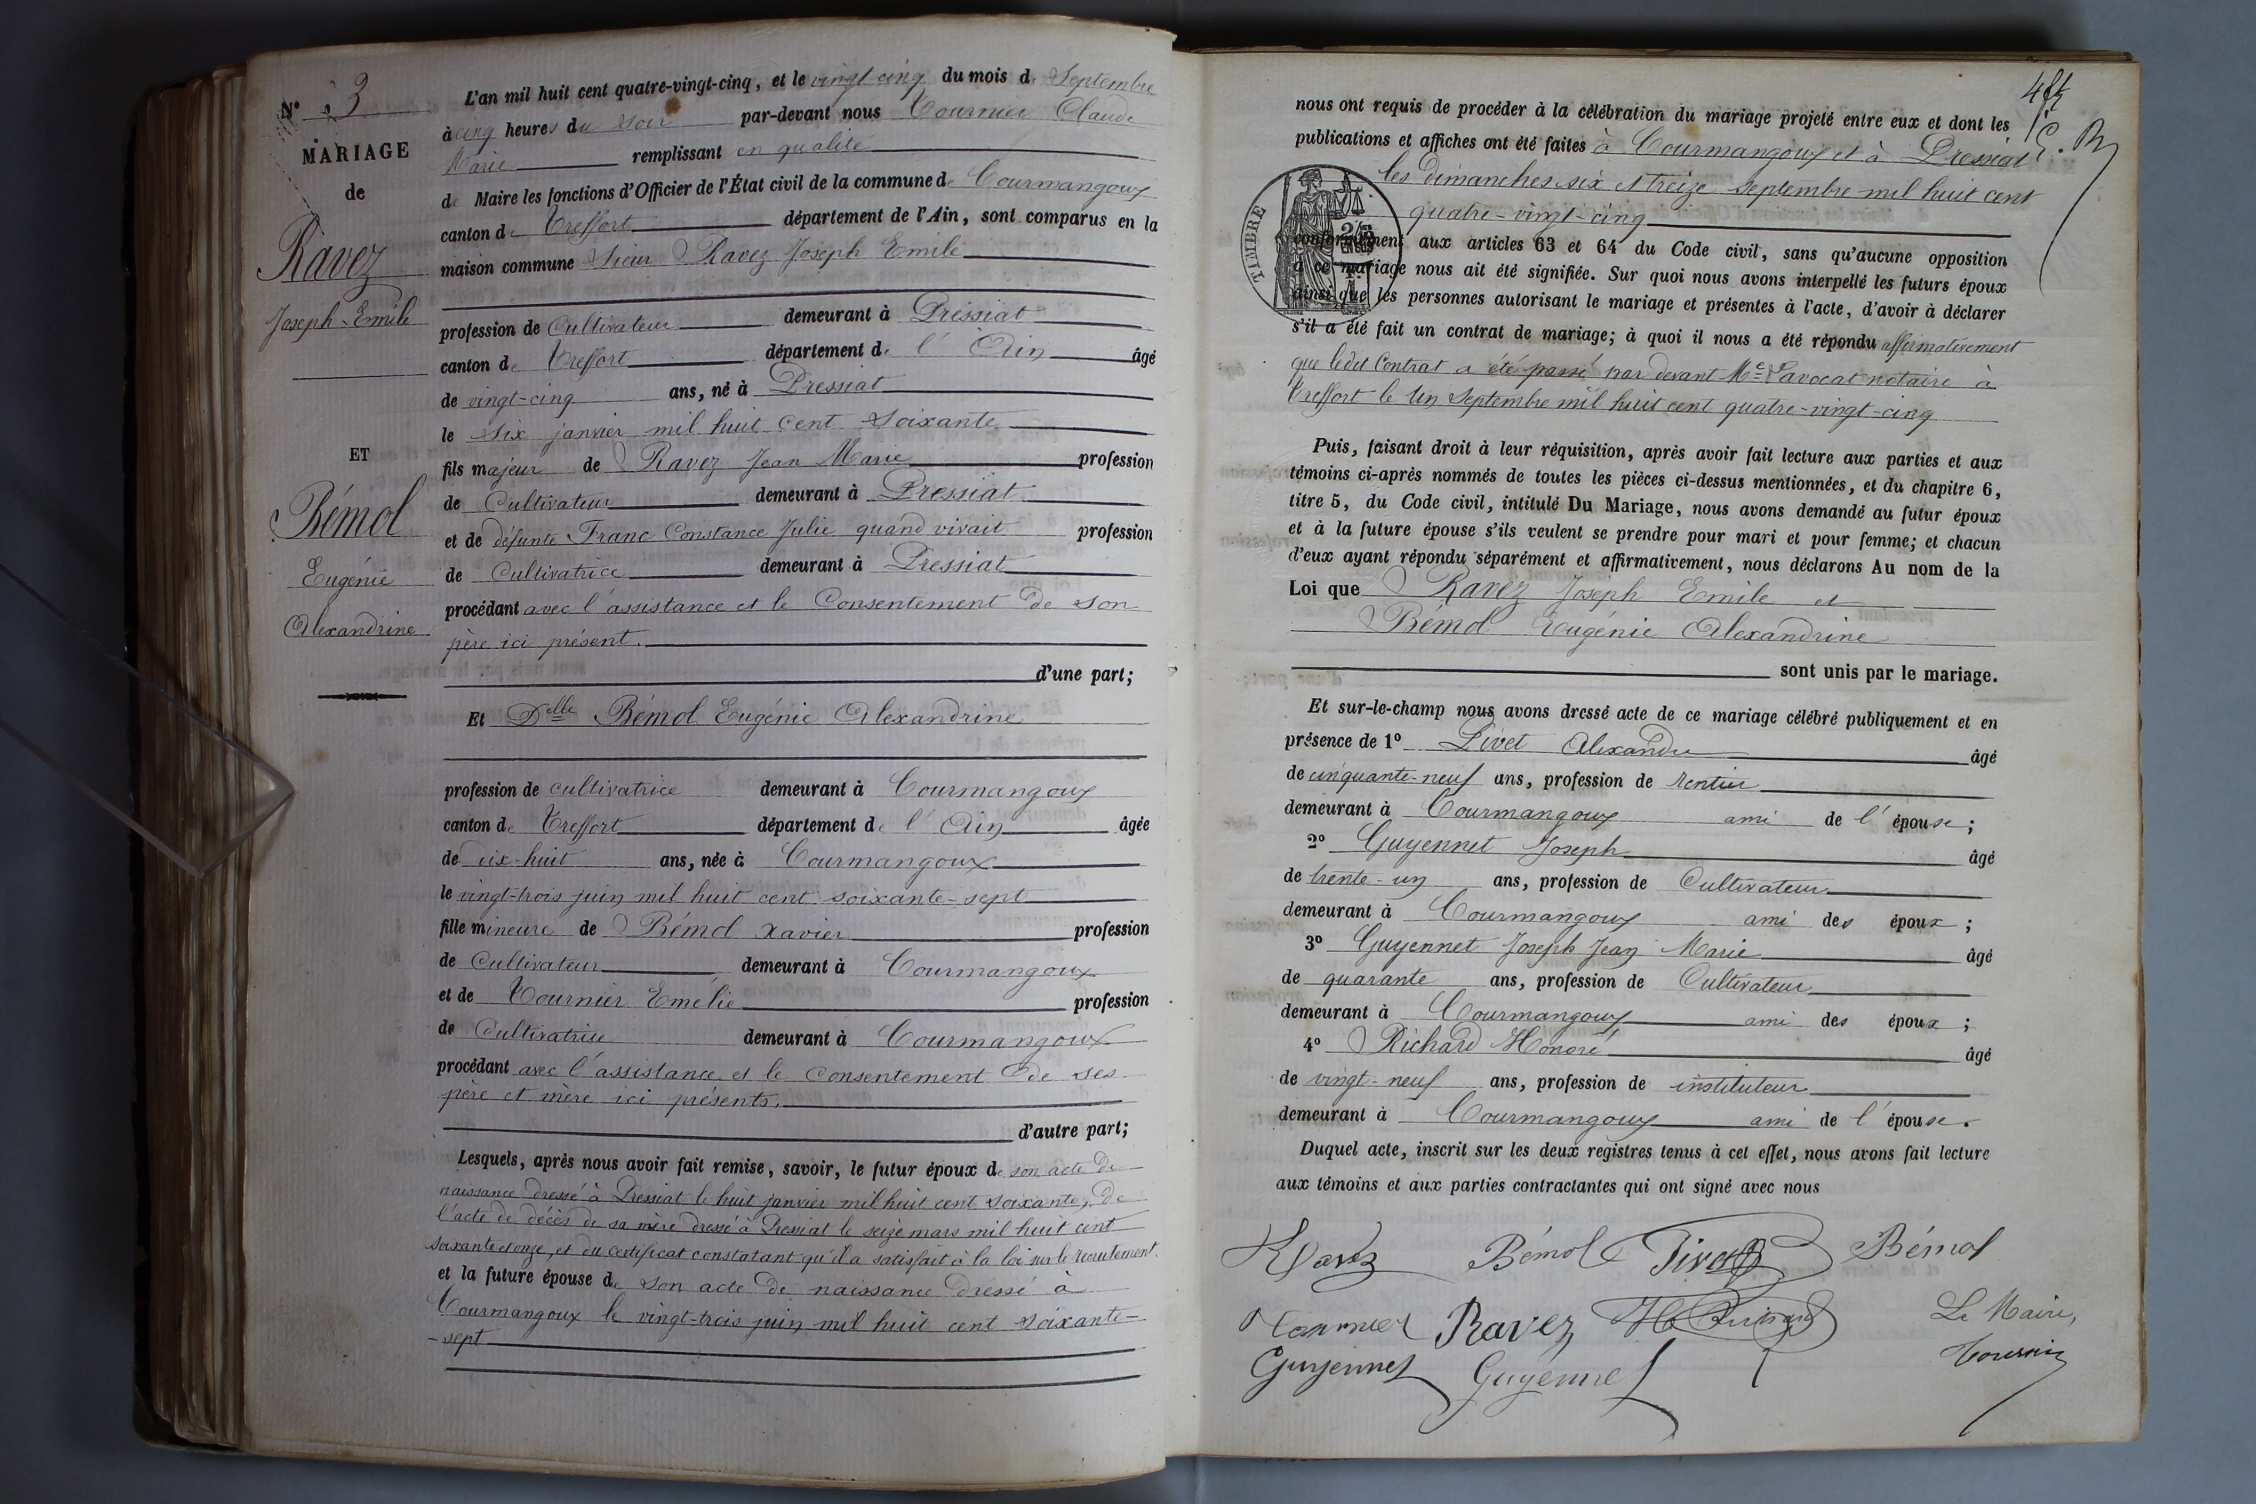 N° 3
MARIAGE
de
Ravez
Joseph-Emile
ET
Bémol
Eugénie
Alexandrine
L'an mil huit cent quatre-vingt-cinq, et le vingt-cinq du mois de Septembre
à cinq heures du soir par-devant nous Tournier Claude
Marie remplissant en qualité
de Maire les fonctions d'Officier de l'État civil de la commune de Courmangoux
canton de Treffort département de l'Ain, sont comparus en la
maison commune Sieur Ravez Joseph Emile
profession de Cultivateur demeurant à Pressiat
canton de Treffort département de l'Ain âgé
de vingt-cinq ans, né à Pressiat
le six janvier mil huit cent soixante
fils majeur de Ravez Jean Marie profession
de Cultivateur demeurant à Pressiat
et de défunte Franc Constance Julie quand vivait profession
de Cultivatrice demeurant à Pressiat
procédant avec l'assistance et le Consentement de son
père ici présent.
d'une part;
Et Delle Bémol Eugénie Alexandrine
profession de cultivatrice demeurant à Courmangoux
canton de Treffort département de l'Ain âgée
de dix-huit ans, née à Courmangoux
le vingt-trois juin mil huit cent soixante-sept
fille mineure de Bémol Xavier profession
de Cultivateur demeurant à Courmangoux
et de Tournier Emélie profession
de Cultivatrice demeurant à Courmangoux
procédant avec l'assistance et le Consentement de ses
père et mère ici présents.
d'autre part;
Lesquels, après nous avoir fait remise, savoir, le futur époux de son acte de
naissance dressé à Pressiat le huit janvier mil huit cent soixante, de
l'acte de décès de sa mère dressé à Pressiat le seize mars mil huit cent
soixante et onze, et du certificat constatant qu'il a satisfait à la loi sur le recrutement.
et la future épouse de son acte de naissance dressé à
Courmangoux le vingt-trois juin mil huit cent soixante-
-sept
nous ont requis de procéder à la célébration du mariage projeté entre eux et dont les
publications et affiches ont été faites à Courmangoux et à Pressiat
les dimanches six et treize septembre mil huit cent
quatre-vingt-cinq
TIMBRE
conformément aux articles 63 et 64 du Code civil, sans qu'aucune opposition
à ce mariage nous ait été signifiée. Sur quoi nous avons interpellé les futurs époux
ainsi que les personnes autorisant le mariage et présentes à l'acte, d'avoir à déclarer
s'il a été fait un contrat de mariage; à quoi il nous a été répondu affirmativement
que ledit Contrat a été passé par devant Me Savocat notaire à
Treffort le Un Septembre mil huit cent quatre-vingt-cinq
Puis, faisant droit à leur réquisition, après avoir fait lecture aux parties et aux
témoins ci-après nommés de toutes les pièces ci-dessus mentionnées, et du chapitre 6,
titre 5, du Code civil, intitulé Du Mariage, nous avons demandé au futur époux
et à la future épouse s'ils veulent se prendre pour mari et pour femme; et chacun
d'eux ayant répondu séparément et affirmativement, nous déclarons Au nom de la
Loi que Ravez Joseph Emile et
Bémol Eugénie Alexandrine
sont unis par le mariage.
Et sur-le-champ nous avons dressé acte de ce mariage célébré publiquement et en
présence de 1° Livet Alexandre âgé
de cinquante-neuf ans, profession de rentier
demeurant à Courmangoux ami de l'épouse;
2° Guyennet Joseph âgé
de trente-un ans, profession de Cultivateur
demeurant à Courmangoux ami des époux;
3° Guyennet Joseph Jean Marie âgé
de quarante ans, profession de Cultivateur
demeurant à Courmangoux ami des époux;
4° Richard Honoré âgé
de vingt-neuf ans, profession de instituteur
demeurant à Courmangoux ami de l'épouse.
Duquel acte, inscrit sur les deux registres tenus à cet effet, nous avons fait lecture
aux témoins et aux parties contractantes qui ont signé avec nous
Ravez Bémol Bémol
Tournier Ravez Le Maire,
Guyennet Guyennet Tournier